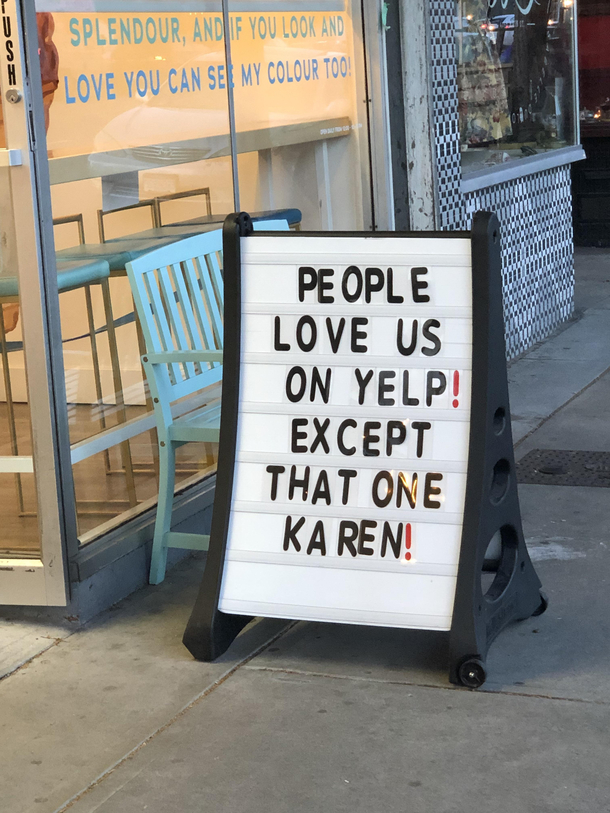 PUSH
SPLENDOUR, AND IF YOU LOOK AND
LOVE YOU CAN SEE MY COLOUR TOO!
PEOPLE
LOVE US
ON YELP!
EXCEPT
THAT ONE
KAREN!